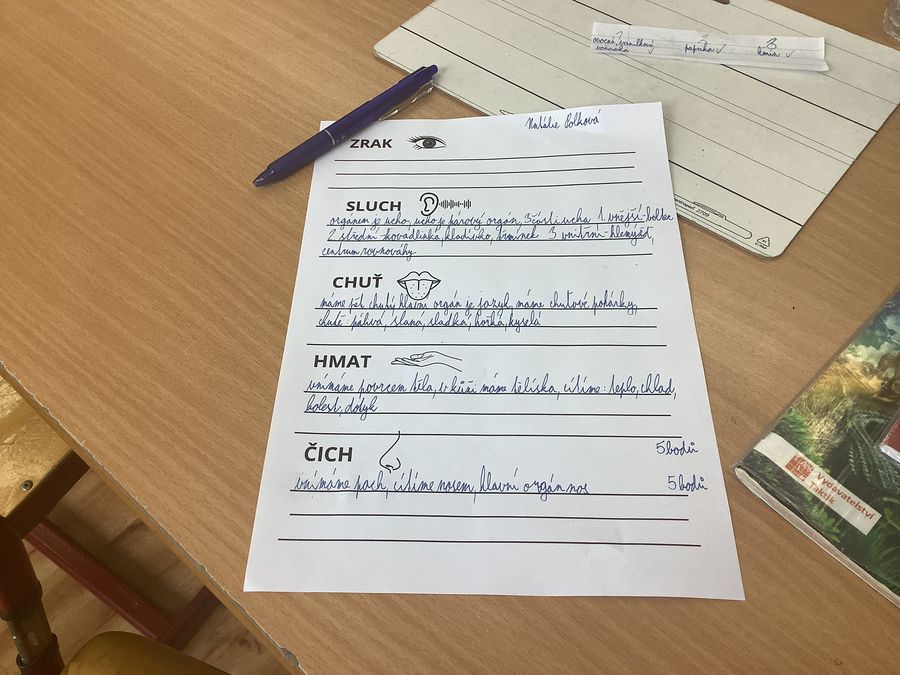 ovocná, vanilkový
voňavka
paprika ✓
3
kmín ✓
Natálie Polková
ZRAK
SLUCH
orgánem je ucho, ucho je párový orgán, 3 části ucha 1. vnější-boltec
2. střední-kovadlinka, kladívko, třmínek 3 vnitřní-hlemýžď,
centrum rovnováhy
CHUŤ
máme pět chutí, hlavní orgán je jazyk, máme chuťové pohárky,
chutě: pálivá, slaná, sladká, hořká, kyselá
HMAT
vnímáme povrcem těla, v kůži máme tělíska, cítíme: teplo, chlad,
bolest, dotyk
ČICH
5 bodů
vnímáme pach, cítíme nosem, hlavní orgán nos
5 bodů
Vydavatelství
Taktik